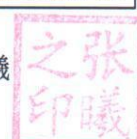 张曦
之印